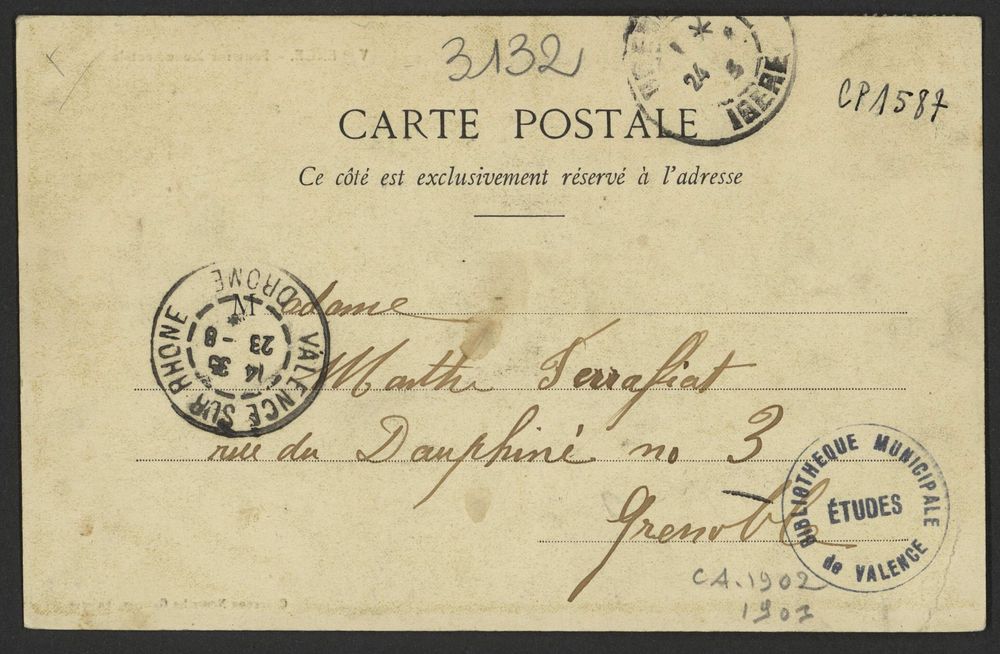 3132
CP1587
24
ISERE
CARTE POSTALE
Ce côté est exclusivement réservé à l'adresse
VALENCE SUR RHONE
DROME
14 35
23 - 8
Madame
Marthe Terrafiat
rue du Dauphiné no 3
Grenoble
BIBLIOTHEQUE MUNICIPALE
ÉTUDES
de VALENCE
CA.1902
1907